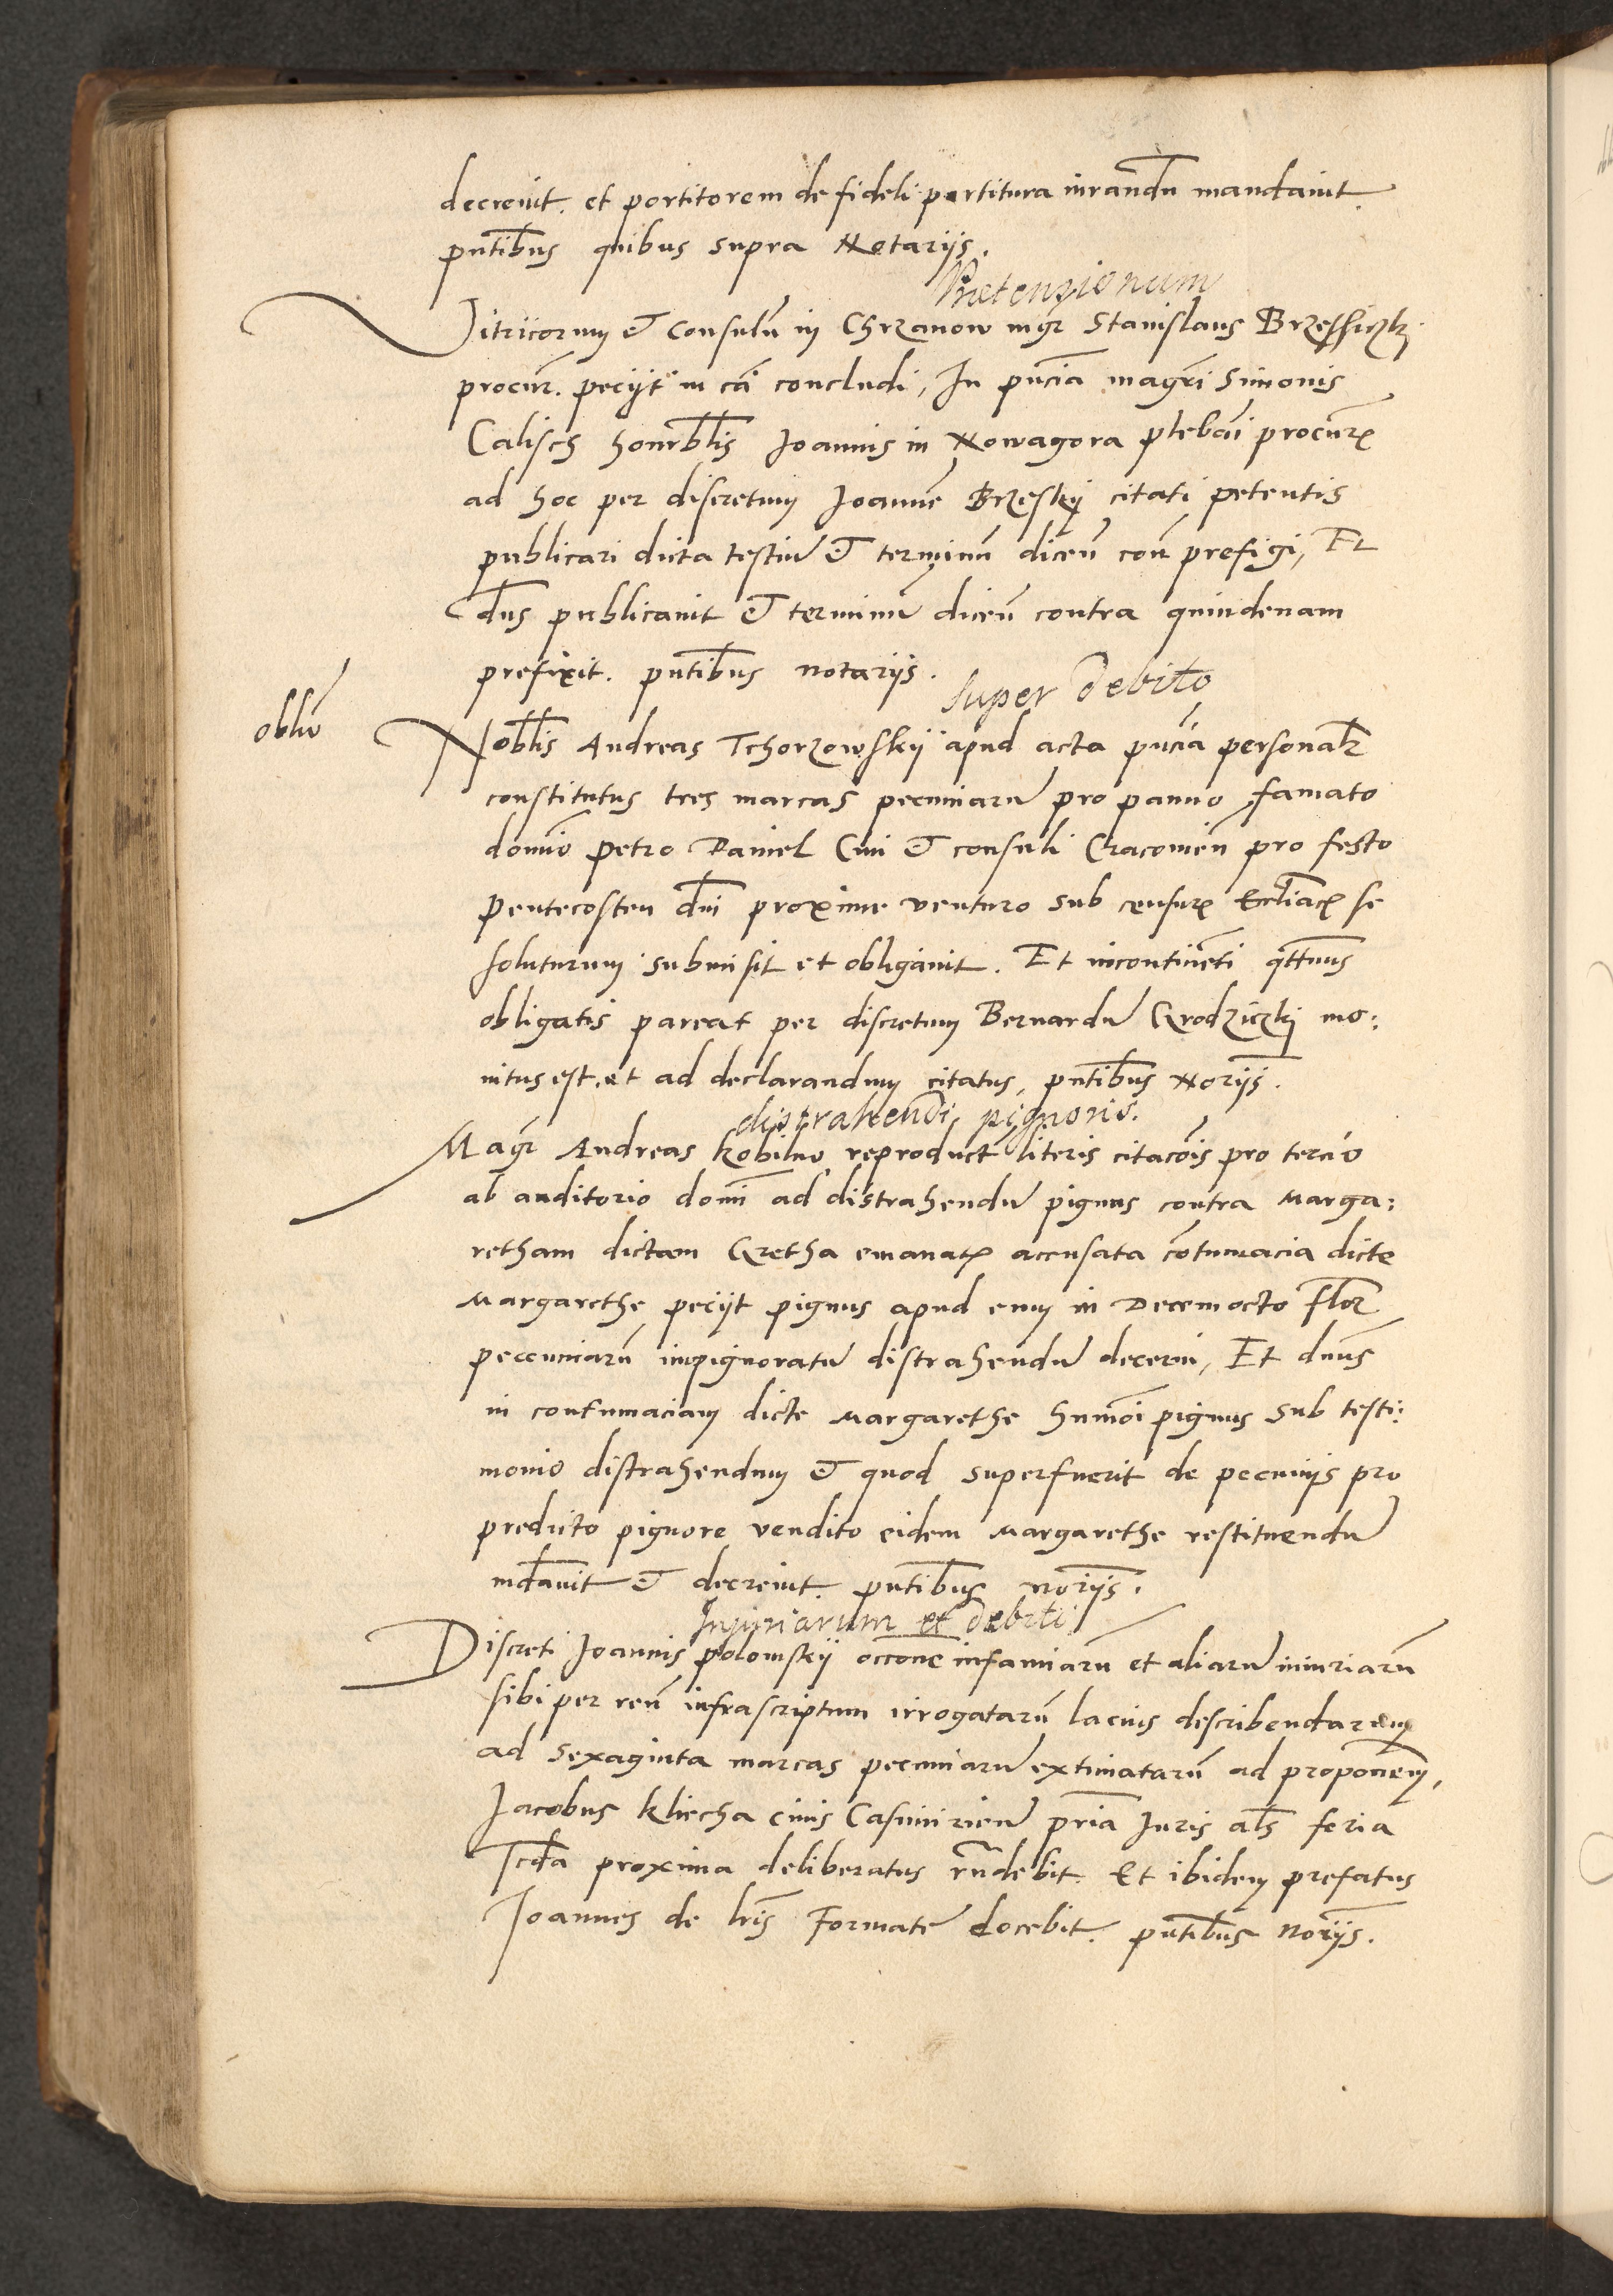 decreuit. et portitorem de fideli portitura iurandū mandauit.
pntibus quibus supra Notarijs.
Pretensionum
Vitricorum & Consulū in Chrzanow mgr Stanislaus Brzessiczky
procur. pecijt in cā concludi, In pncia magri Simonis
Calisch honrblis Joannis in Nowagora plebāi procur
ad hoc per discretum Joannē Brzesky citati petentis
publicari dicta testiū & terminū dicen con prefigi, Et
dns publicauit & terminū dicen contra quindenam
prefixit. pntibus notarijs.
Super Debito
oblio
Noblis Andreas Tchorzowskij apud acta pncia personalr
constitutus tres marcas pecuniarū pro panno famato
domino Petro Daniel Ciui & consuli Cracouien pro festo
Pentecosten dni proxime venturo sub censur Ecclīac se
soluturum submisit et obligauit. Et incontinēti qttnus
obligatis pareat per discretum Bernardū Grodziczky mo:
nitus est. et ad declarandum citatus, pntibus Norijs.
distrahendi pignoris.
Magr Andreas Kobilno reproduct literis citacōis pro tercio
ab auditorio domi ad distrahendū pignus contra Marga:
retham dictam Gretha emanat accusata cōtumacia dicte
Margarethe pecijt pignus apud eum in Decemocto flor
peccuniarū impignoratū distrahendū decerni, Et dnus
in contumaciam dicte Margarethe hmōi pignus sub testi:
monio distrahendum & quod superfuerit de pecunijs pro
predicto pignore vendito eidem Margarethe restituendū
mdauit & decreuit pntibus norijs.
Injuriarum et debiti
Discreti Joannis Polomskij occone infamiarū et aliarū iniuriarū
sibi per reū infrascriptum irrogatarū lacius describendarum
ad sexaginta marcas pecuniarū extimatarū ad propōnem,
Jacobus Kliecha ciuis Casimirien pria Iuris als feria
scda proxima deliberatus rndebit Et ibidem prefatus
Joannes de lris Formatē docebit. pntibus norijs.